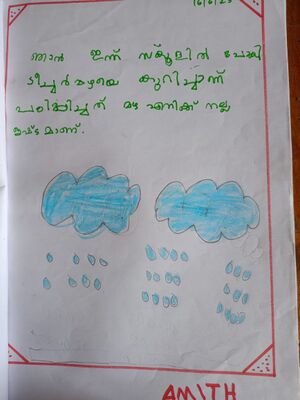 16/6/23
ഞാൻ ഇന്ന് സ്കൂളിൽ പോയി
ടീച്ചർ മഴയെ കുറിച്ചാണ്
പഠിപ്പിച്ചത് മഴ എനിക്ക് നല്ല
ഇഷ്ടമാണ്.
AMITH